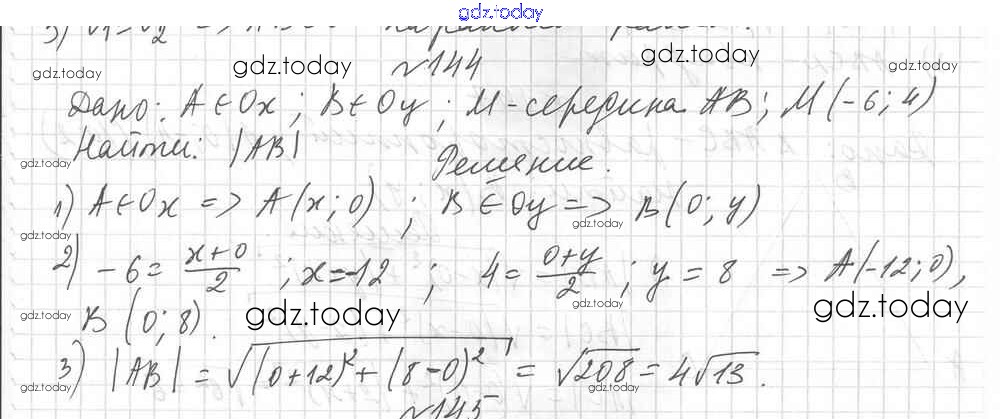 gdz.today
№144
gdz.today gdz.today gdz.today gdz.today
Дано: A∈Ox; B∈Oy; M-середина AB; M(-6; 4)
Найти: |AB|
gdz.today
Решение.
1) A∈Ox => A(x; 0) ; B∈Oy => B(0; y)
gdz.today gdz.today
gdz.today
2) -6 = (x+0)/2 ; x = -12 ; 4 = (0+y)/2 ; y = 8 => A(-12; 0),
B(0; 8).
gdz.today gdz.today gdz.today gdz.today
3) |AB| = √((0+12)²+(8-0)²) = √208 = 4√13.
gdz.today gdz.today
№145